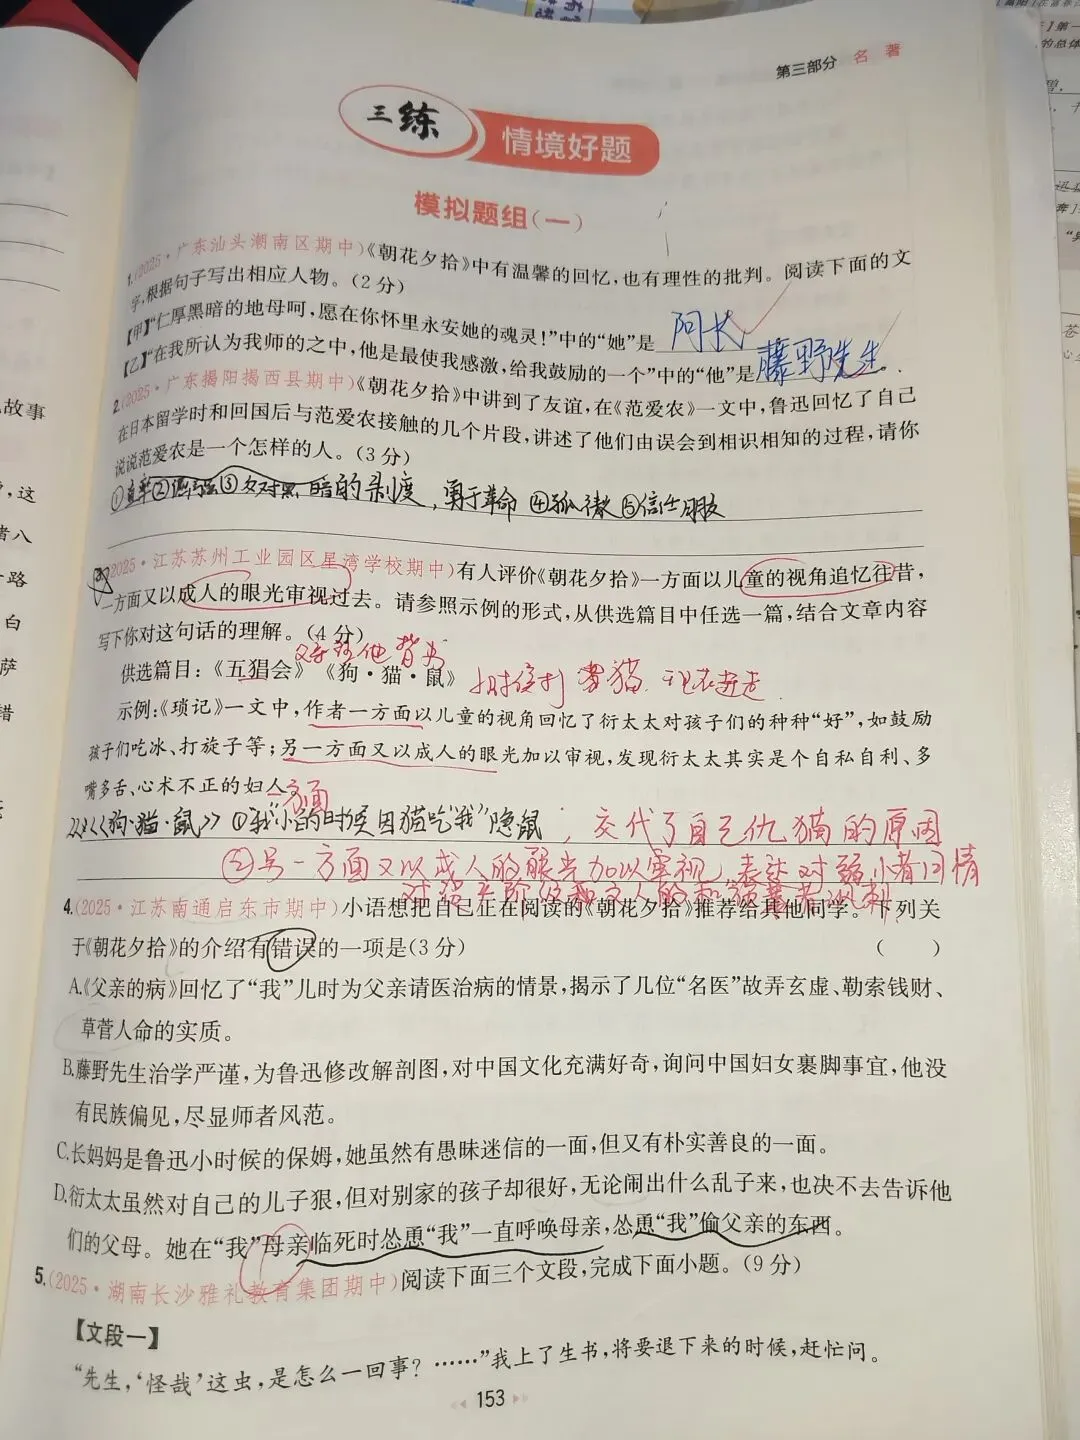 第三部分 名著
三练 情境好题
模拟题组(一)
1.(2025·广东汕头潮南区期中)《朝花夕拾》中有温馨的回忆,也有理性的批判。阅读下面的文
字,根据句子写出相应人物。(2分)
【甲】“仁厚黑暗的地母呵,愿在你怀里永安她的魂灵!”中的“她”是 阿长
【乙】“在我所认为我师的之中,他是最使我感激,给我鼓励的一个”中的“他”是 藤野先生 。
2.(2025·广东揭阳揭西县期中)《朝花夕拾》中讲到了友谊,在《范爱农》一文中,鲁迅回忆了自己
在日本留学时和回国后与范爱农接触的几个片段,讲述了他们由误会到相识相知的过程,请你
说说范爱农是一个怎样的人。(3分)
①直率② ③反对黑暗的制度,勇于革命 ④孤傲 ⑤信任朋友
3.(2025·江苏苏州工业园区星湾学校期中)有人评价《朝花夕拾》一方面以儿童的视角追忆往昔,
一方面又以成人的眼光审视过去。请参照示例的形式,从供选篇目中任选一篇,结合文章内容
写下你对这句话的理解。(4分)
他背书
供选篇目:《五猖会》《狗·猫·鼠》 猫
示例:《琐记》一文中,作者一方面以儿童的视角回忆了衍太太对孩子们的种种“好”,如鼓励
孩子们吃冰、打旋子等;另一方面又以成人的眼光加以审视,发现衍太太其实是个自私自利、多
嘴多舌、心术不正的妇人。
一方面
《狗·猫·鼠》①“我”小的时候因猫吃“我”隐鼠;交代了自己仇猫的原因
②另一方面又以成人的眼光加以审视,表达对弱小者同情
4.(2025·江苏南通启东市期中)小语想把自己正在阅读的《朝花夕拾》推荐给其他同学。下列关
于《朝花夕拾》的介绍有错误的一项是(3分) ( )
A.《父亲的病》回忆了“我”儿时为父亲请医治病的情景,揭示了几位“名医”故弄玄虚、勒索钱财、
草菅人命的实质。
B.藤野先生治学严谨,为鲁迅修改解剖图,对中国文化充满好奇,询问中国妇女裹脚事宜,他没
有民族偏见,尽显师者风范。
C.长妈妈是鲁迅小时候的保姆,她虽然有愚昧迷信的一面,但又有朴实善良的一面。
D.衍太太虽然对自己的儿子狠,但对别家的孩子却很好,无论闹出什么乱子来,也决不去告诉他
们的父母。她在“我”母亲临死时怂恿“我”一直呼唤母亲,怂恿“我”偷父亲的东西。
5.(2025·湖南长沙雅礼教育集团期中)阅读下面三个文段,完成下面小题。(9分)
【文段一】
“先生,‘怪哉’这虫,是怎么一回事?……”我上了生书,将要退下来的时候,赶忙问。
153